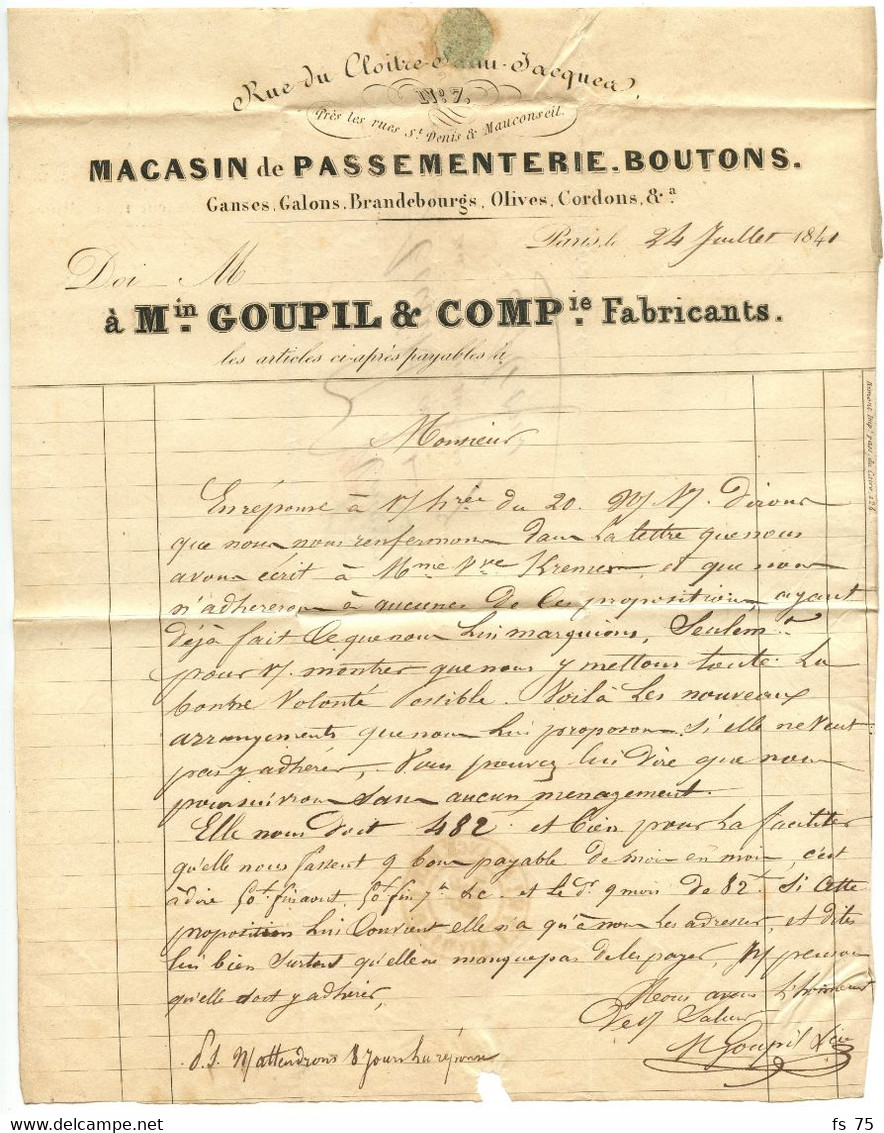 Rue du Cloitre Saint-Jacques,
No. 7.
Près les rues St. Denis & Mauconseil.
MAGASIN de PASSEMENTERIE. BOUTONS.
Ganses, Galons, Brandebourgs, Olives, Cordons, &a.
Paris, le 24 Juillet 1841
Doi M
à Min. GOUPIL & COMPie. Fabricants.
les articles ci-après payables à
Monsieur
En réponse à V/ du 20. N/ V/. Dirons
que nous nous renfermons dans La lettre que nous
avons écrit à Mme Vve Kremer, et que nous
n'adhererons à aucunes De Ces propositions, ayant
déjà fait Ce que nous Lui marquions, Seulemt.
pour V/. montrer que nous y mettons toute La
bonne Volonté Possible. Voilà Les nouveaux
arrangements que nous Lui proposons. Si elle ne Veut
pas y adhérer, Vous pouvez lui Dire que nous
poursuivrons Sans aucun menagement.
Elle nous Doit 482f et bien pour La faciliter
qu'elle nous fassent 9 bons payable De mois en mois, c'est
à dire 50f fin aout, 50f fin 7re &c. et Le Dr. 9 mois De 82f. Si Cette
proposition Lui Convient elle n'a qu'à nous Les adresser, et dites
Lui bien Surtout qu'elle ne manque pas de les payer, N/ pensons
qu'elle doit y adhérer,
Nous avons L'honneur
De V/ Saluer
M Goupil & Cie
P.S. N/ attendrons 8 jours La réponse
fs 75